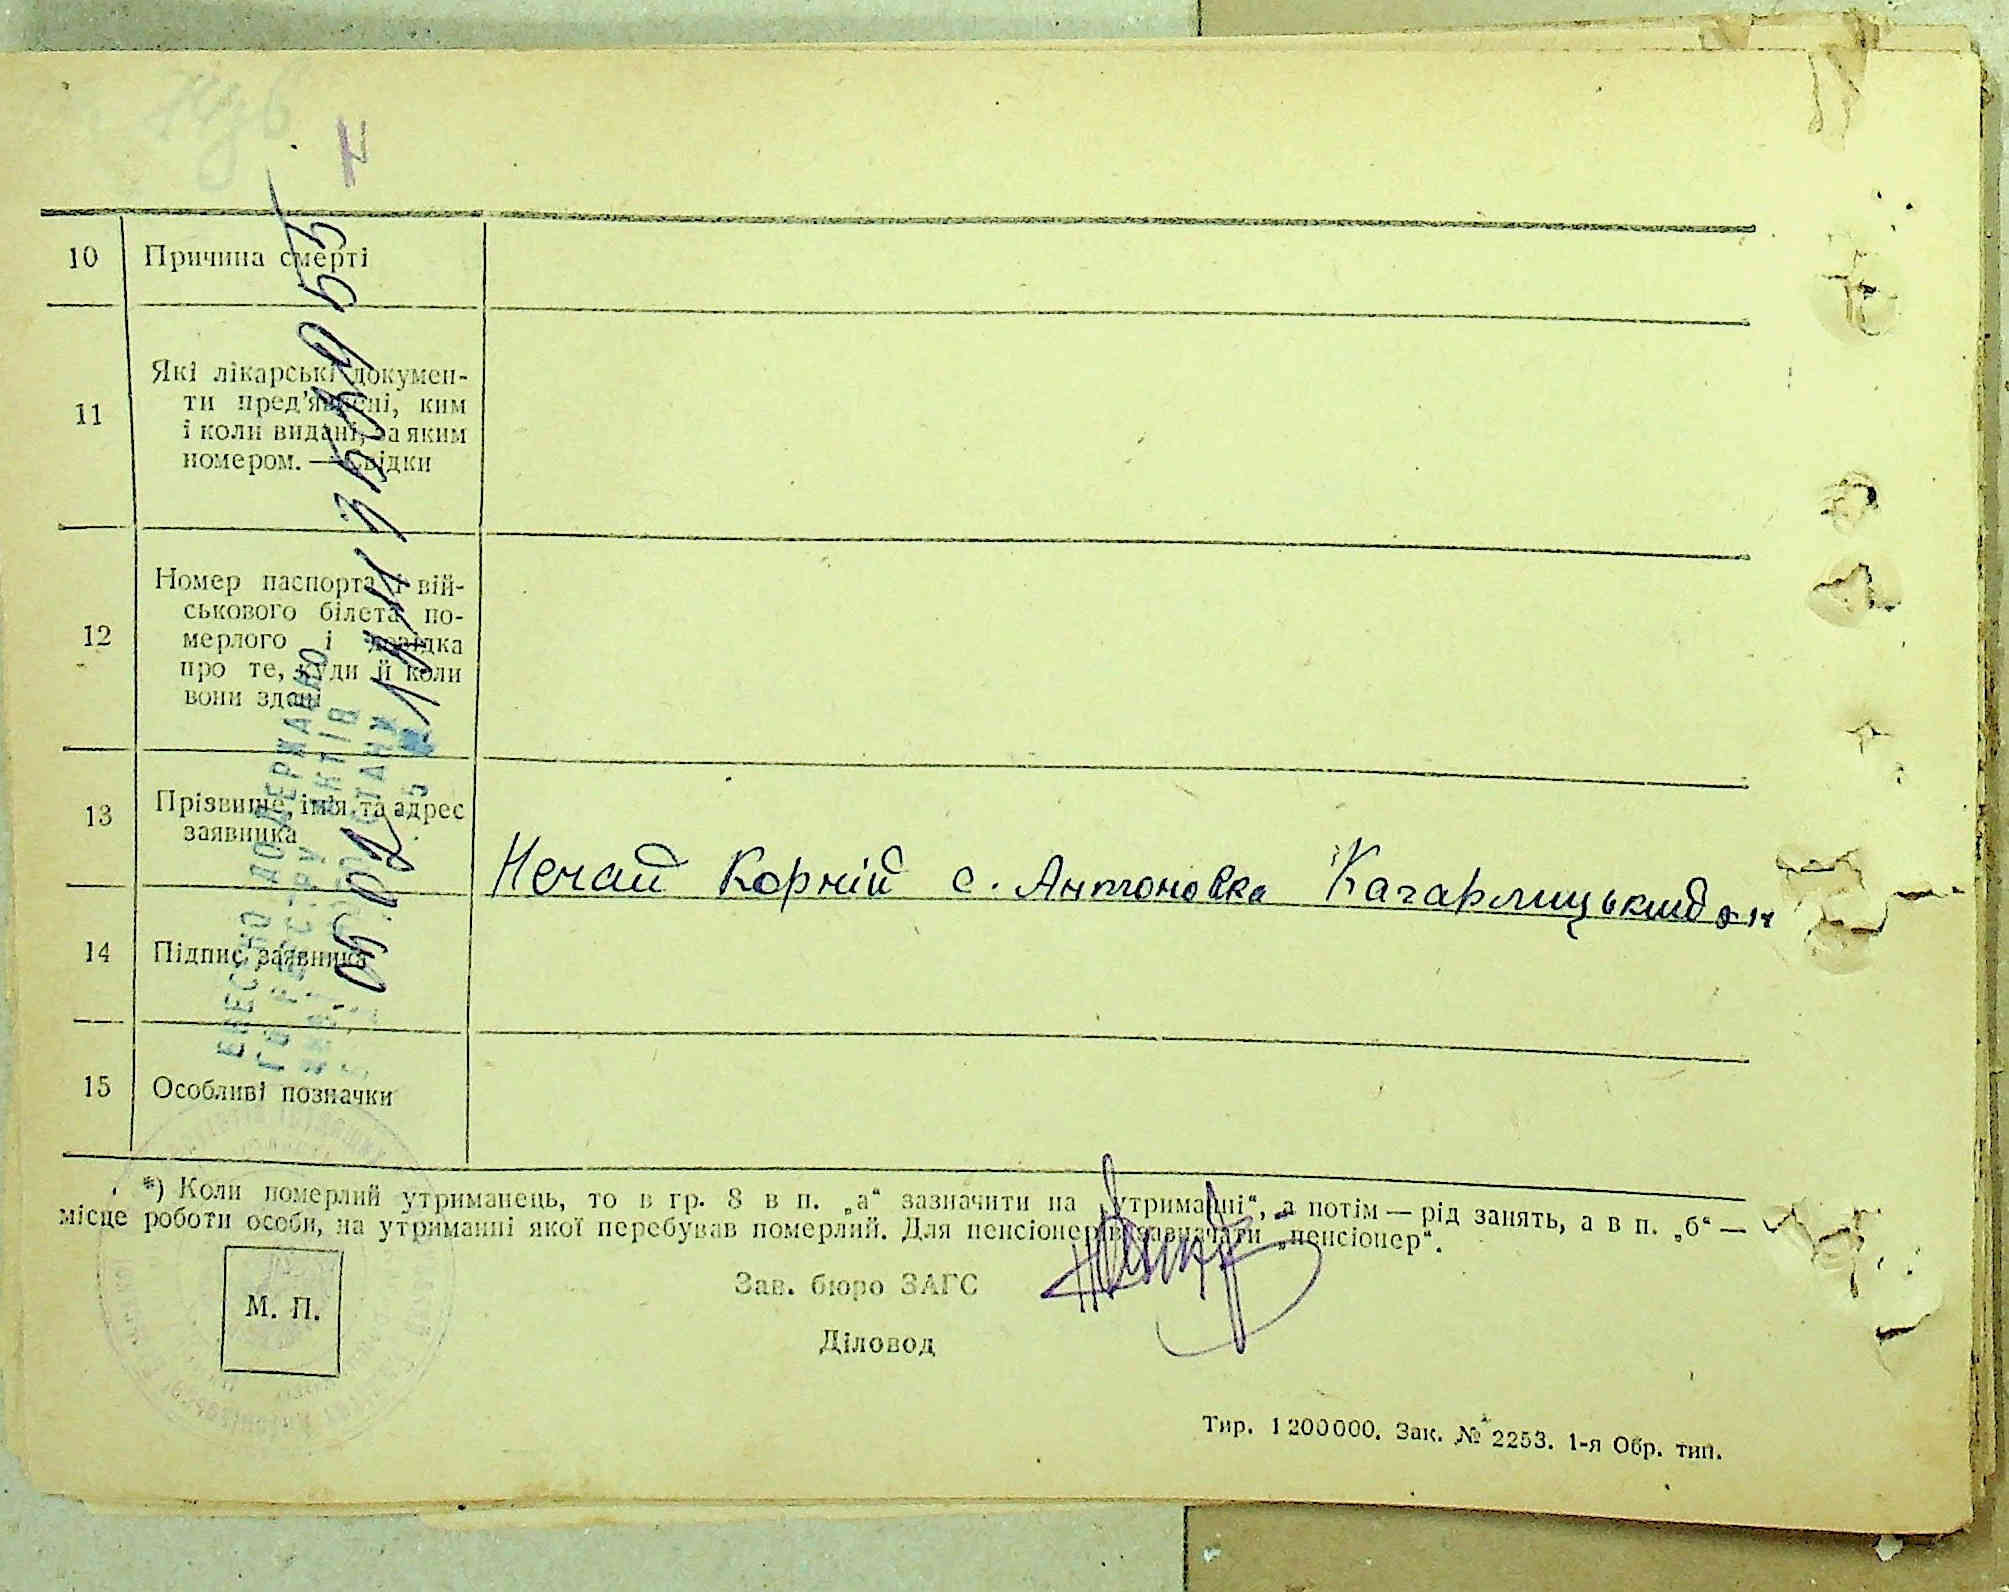 10 Причина смерті
11 Які лікарські докумен-
ти пред'явлені, ким
і коли видані, за яким
номером. — Свідки
12 Номер паспорта і вій-
ськового білета по-
мерлого і довідка
про те, куди й коли
вони здані
13 Прізвище, ім'я та адрес
заявника
Нечай Корній с. Антоновка Кагарлицький
14 Підпис заявника
15 Особливі позначки
ВНЕСЕНО ДО ДЕРЖАВНО
*) Коли померлий утриманець, то в гр. 8 в п. „а“ зазначити на „утриманні“, а потім — рід занять, а в п. „б“ —
місце роботи особи, на утриманні якої перебував померлий. Для пенсіонерів зазначати „пенсіонер“.
М. П.
Зав. бюро ЗАГС
Діловод
Тир. 1 200 000. Зак. № 2253. 1-я Обр. тип.